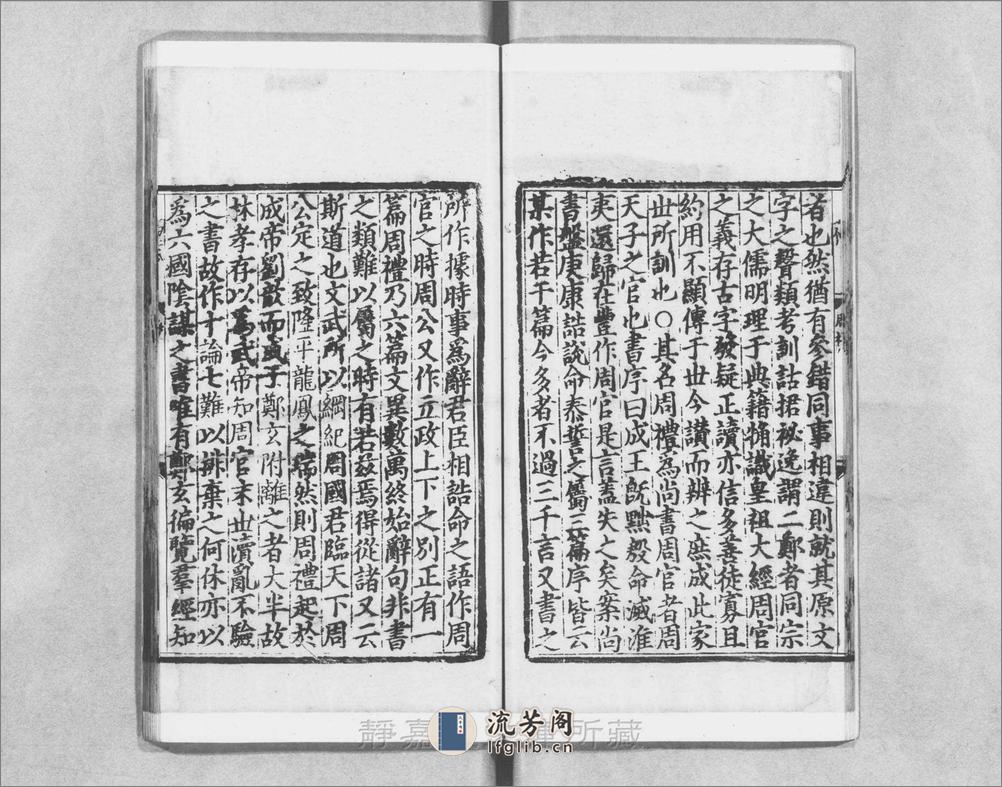 者也然猶有參錯同事相違則就其原文
字之聲類考訓詁捃祕逸謂二鄭者同宗
之大儒明理于典籍觕識皇祖大經周官
之義存古字發疑正讀亦信多善徒寡且
約用不顯傳于世今讃而辨之庶成此家
世所訓也〇其名周禮爲尚書周官者周
天子之官也書序曰成王旣黜殷命滅淮
夷還歸在豐作周官是言蓋失之矣案尚
書盤庚康誥說命泰誓之屬三篇序皆云
某作若干篇今多者不過三千言又書之
所作據時事爲辭君臣相誥命之語作周
官之時周公又作立政上下之別正有一
篇周禮乃六篇文異數萬終始辭句非書
之類難以屬之時有若茲焉得從諸又云
斯道也文武所以綱紀周國君臨天下周
公定之致隆平龍鳳之瑞然則周禮起於
成帝劉歆而成于鄭玄附離之者大半故
林孝存以爲武帝知周官末世瀆亂不驗
之書故作十論七難以排棄之何休亦以
爲六國陰謀之書唯有鄭玄徧覽羣經知
靜嘉 所藏
流芳阁
lfglib.cn